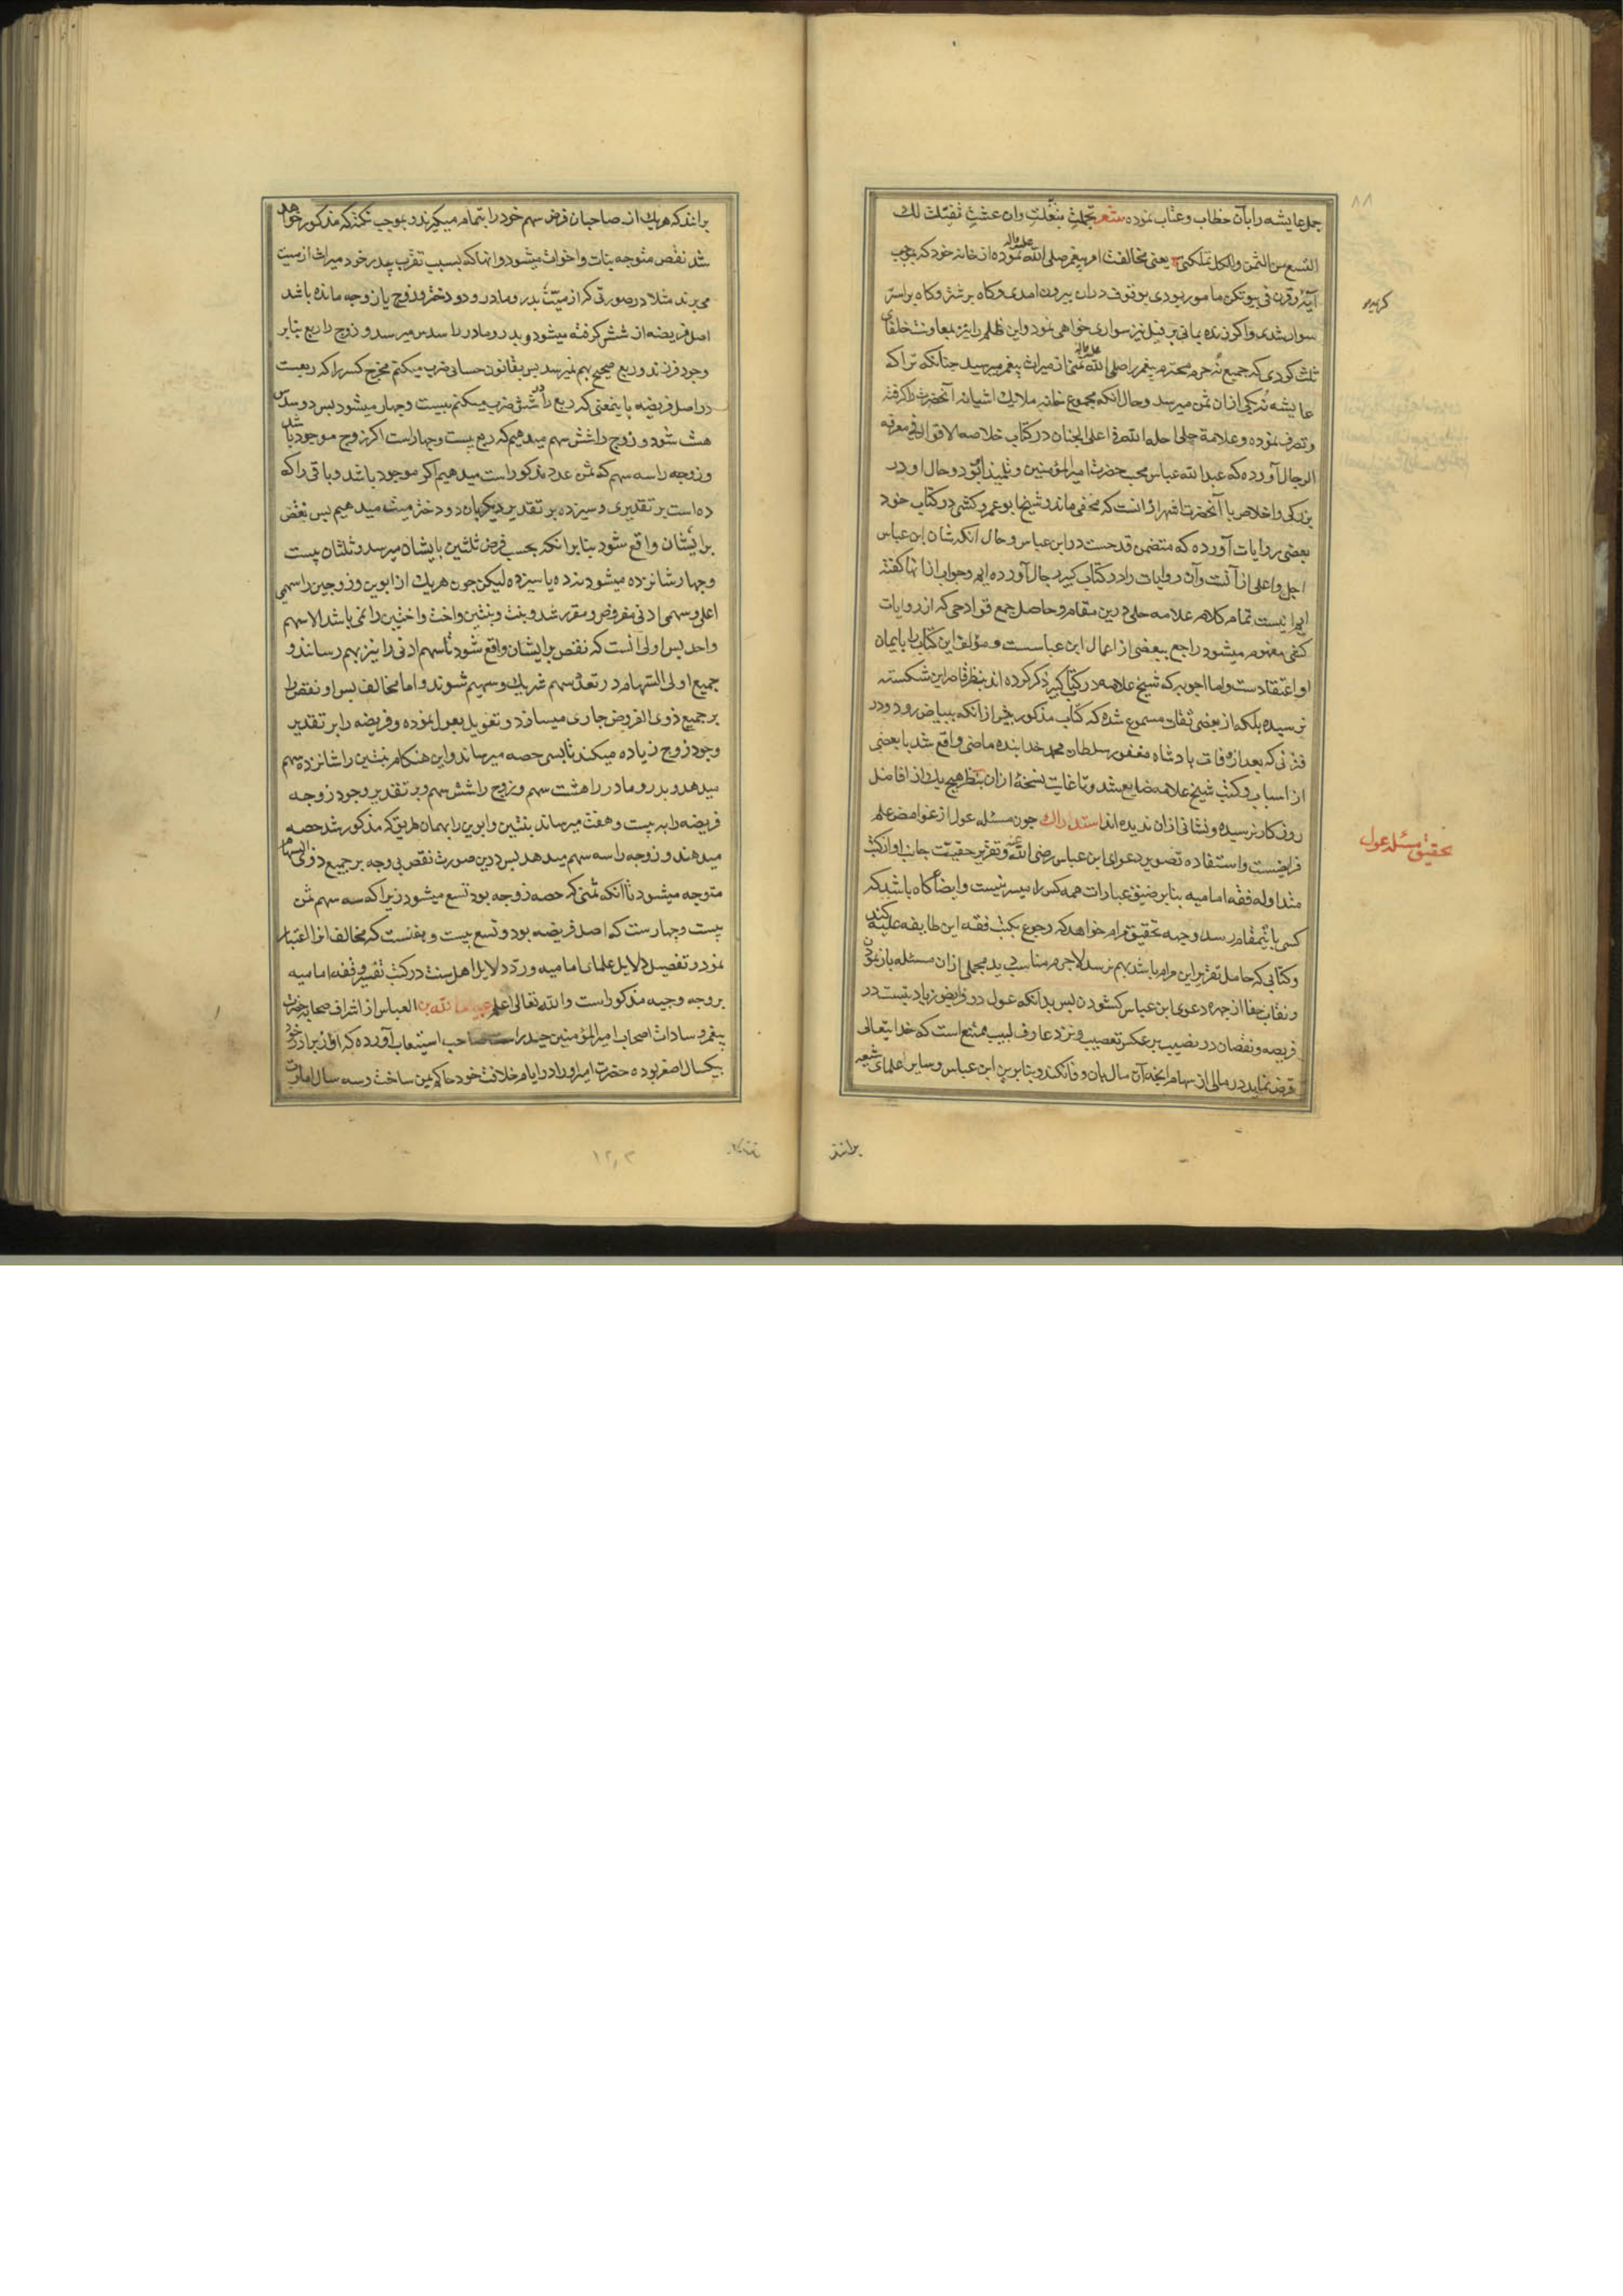 جمل عایشه را بآن خطاب وعتاب نموده شعر تجملت تبغلت وان عشت تفیلت لك
التسع من الثمن والکل تملکتی یعنی مخالفت امر پیغمبر صلی الله علیه واله نموده از خانه خود که بموجب
آیة وقرن فی بیوتکن مامور بودی بوقوف دران بیرون امدی وکاه بر شتر وکاه بر استر
سوار شدی واکر زنده بمانی بر فیل نیز سواری خواهی نمود واین ظلم را نیز بمعاونت خلفای
ثلث کودی که جمیع نه حرم محترم پیغمبر را صلی الله علیه واله ثمنی از میراث پیغمبر میرسید چنانکه ترا که
عایشه نه یکی ازان ثمن میرسد وحال انکه مجموع خانه ملایك اشیانه آنحضرت را کرفته
وتصرف نموده وعلامة حلی احله الله فی اعلی الجنان در کتاب خلاصه الاقوال فی معرفه
الرجال آورده که عبد الله عباس محب حضرت امیر المؤمنین وتلمیذ او بود وحال او در
بزرکی واخلاص با آنحضرت اشهر از انست که مخفی ماند وشیخ ابو عمرو کشی در کتاب خود
بعضی روایات آورده که متضمن قدحست در ابن عباس وحال آنکه شان ابن عباس
اجل واعلی از آنست وآن روایات را در کتاب کبیر رجال آورده ایم وجواب ازانها کفته
ایم اینست تمام کلام علامه حلی درین مقام وحاصل جمع قوادحی که از روایات
کشی مفهوم میشود راجع ببعضی از اعمال ابن عباسست ومؤلف این کتاب را بایمان
او اعتقادست واما اجوبه که شیخ علامه در کتاب کبیر ذکر کرده اند بنظر قاصر این شکسته
نرسیده بلکه از بعضی ثقات مسموع شده که کتاب مذکور پیش از آنکه ببیاض رود در
فترتی که بعد از وفات پادشاه مغفور سلطان محمد خدابنده ماضی واقع شد با بعضی
از اسباب وکتب شیخ علامه ضایع شد وتا غایت نسخهٔ ازان بنظر هیچ یك از افاضل
روزکار نرسیده ونشانی ازان ندیده اند استدراك چون مسئله عول از غوامض علم
فرایضست واستفاده تصویر دعوای ابن عباس رضی الله عنه وتقریر حقیت جانب او از کتب
متداوله فقه امامیه بنابر ضیق عبارات همه کس را میسر نیست وایضا کاه باشد که
کسی باین مقام رسد وجهه تحقیق مرام خواهد که رجوع بکتب فقه این طایفه علیه کند
وکتابی که حامل تقریر این مرام باشد بهم نرسد لاجرم مناسب دید مجملی ازان مسئله باز نمودن
ونقاب خفا از چهره دعوی ابن عباس کشودن پس بدانکه عول در فرایض زیادتیست در
فریضه ونقصان در نصیب بر عکس تعصیب ونزد عارف لبیب ممتنع است که خدایتعالی
فرض نماید در مالی از سهام انچه آن مال بان وفا نکند وبنابرین ابن عباس وسایر علمای شیعه
برانند
۸۸
تحقیق مسئله عول
برانند که هریك از صاحبان فرض سهم خود را بتمام میکیرند وبموجب نکتهٔ که مذکور خواهد
شد نقص متوجه بنات واخوات میشود وانها که بسبب تقرب پدر خود میراث از میت
می برند مثلا در صورتی که از میت پدر ومادر ودو دختر وزوج یا زوجه مانده باشد
اصل فریضه از شش کرفته میشود وپدر ومادر را سدس میرسد وزوج را ربع بنابر
وجود فرزند وربع صحیح بهم نمیرسد پس بقانون حسابی ضرب میکنم مخرج کسر را که ربعست
در اصل فریضه باینمعنی که ربع را در شش ضرب میکنم بیست وچهار میشود پس دو سدس
هشت شود وزوج را شش سهم میدهیم که ربع بیست وچهار است اکر زوج موجود باشد
وزوجه را سه سهم که ثمن عدد مذکور است میدهیم اکر موجود باشد وباقی را که
ده است بر تقدیری وسیزده بر تقدیر دیکر بان دو دختر میت میدهیم پس نقص
برایشان واقع شود بنابر انکه بحسب فرض ثلثین بایشان میرسد وثلثان بیست
وچهار شانزده میشود نه ده یا سیزده لیکن چون هریك از ابوین وزوجین را سهمی
اعلی وسهمی ادنی مفروض ومقرر شد وبنت وبنتین واخت واختین را نمی باشد الا سهم
واحد پس اولی آنست که نقص برایشان واقع شود تا سهم ادنی را نیز بهم رسانند و
جمیع اولی السهام در تعدد سهم شریك وسهیم شوند واما مخالف پس او نقص را
بر جمیع ذوی الفروض جاری میسازد وتغویل بعول نموده وفریضه را بر تقدیر
وجود زوج زیاده میکند تا بسی حصه میرساند واین هنکام بنتین را شانزده سهم
میدهد وپدر ومادر را هشت سهم وزوج را شش سهم وبر تقدیر وجود زوجه
فریضه را به بیست وهفت میرساند بنتین وابوین را بهمان طریق که مذکور شد حصه
میدهند وزوجه را سه سهم میدهد پس درین صورت نقص بی وجه بر جمیع ذوی السهام
متوجه میشود تا انکه ثمنی که حصه زوجه بود تسع میشود زیرا که سه سهم ثمن
بیست وچهارست که اصل فریضه بود وتسع بیست وهفتست که مخالف انرا اعتبار
نمود وتفصیل دلایل علمای امامیه ورد دلایل اهل سنت در کتب تفسیر وفقه امامیه
بر وجه وجیه مذکور است والله تعالی اعلم عبید الله بن العباس از اشراف صحابه حضرت
پیغمبر وسادات اصحاب امیر المؤمنین حیدر است صاحب استیعاب آورده که او از برادر خود
بیکسال اصغر بوده حضرت امیر او را در ایام خلافت خود حاکم یمن ساخت وسه سال امارت